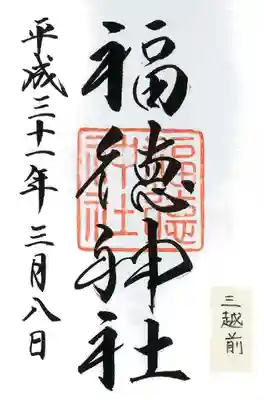 福徳神社
福徳
神社
平成三十一年三月八日
三越前